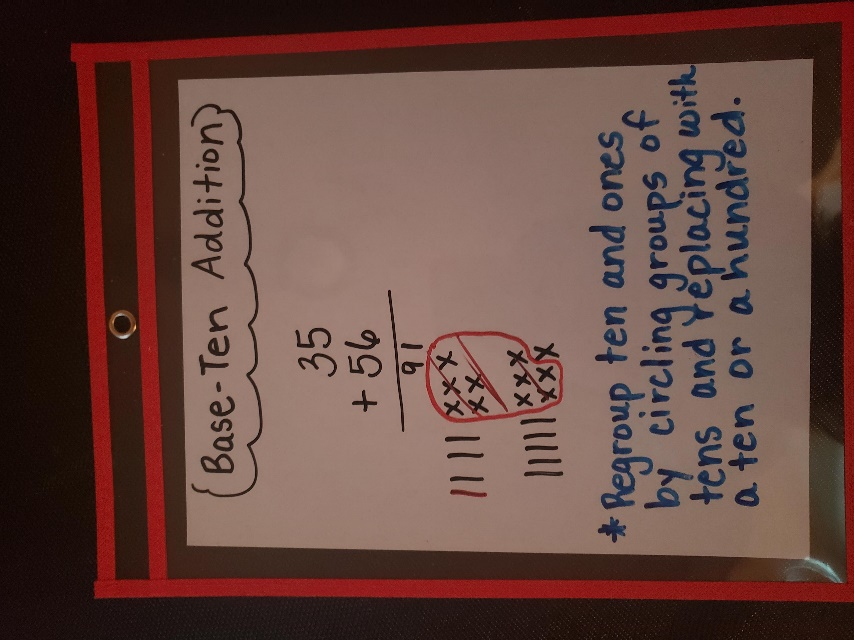 Base-Ten Addition
35
+ 56
91
*Regroup ten and ones
by circling groups of
tens and replacing with
a ten or a hundred.